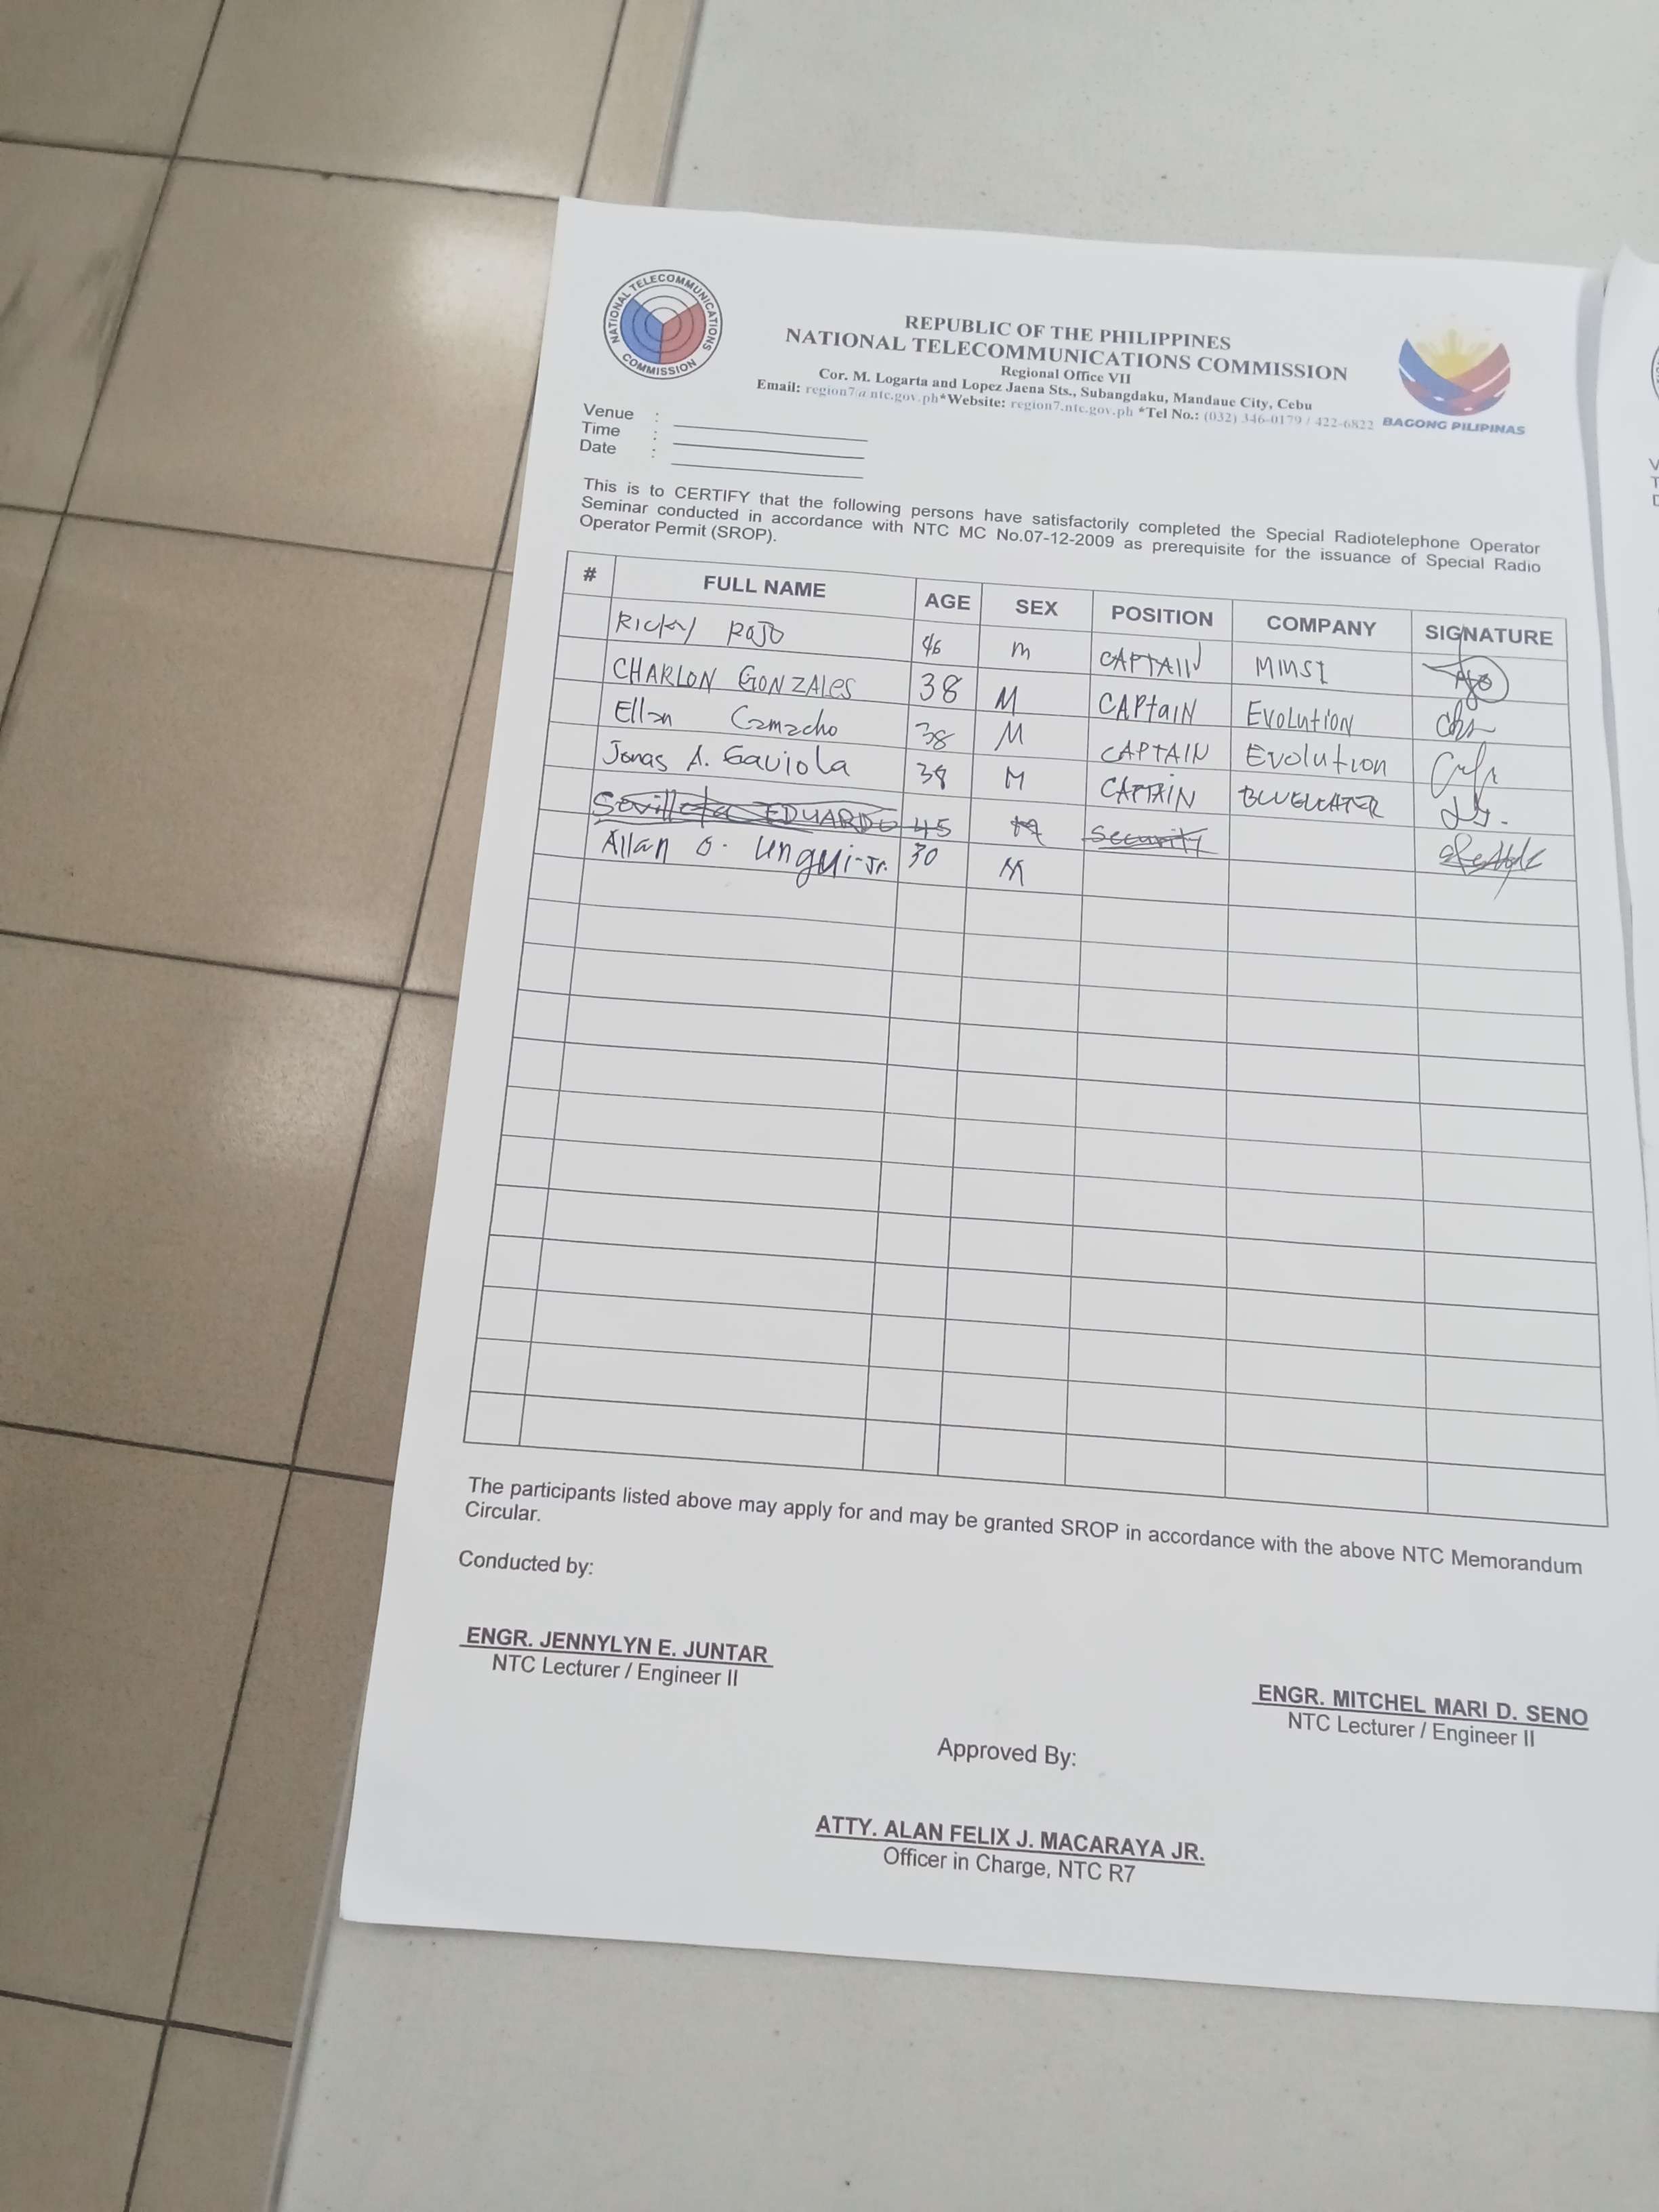 NATIONAL TELECOMMUNICATIONS COMMISSION
REPUBLIC OF THE PHILIPPINES
NATIONAL TELECOMMUNICATIONS COMMISSION
Regional Office VII
Cor. M. Logarta and Lopez Jaena Sts., Subangdaku, Mandaue City, Cebu
Email: region7@ntc.gov.ph*Website: region7.ntc.gov.ph *Tel No.: (032) 346-0179 / 422-6822
BAGONG PILIPINAS
Venue :
Time :
Date :
This is to CERTIFY that the following persons have satisfactorily completed the Special Radiotelephone Operator
Seminar conducted in accordance with NTC MC No.07-12-2009 as prerequisite for the issuance of Special Radio
Operator Permit (SROP).
# FULL NAME AGE SEX POSITION COMPANY SIGNATURE
Ricky ROJO 46 M CAPTAIN MMSI
CHARLON GONZALES 38 M CAPtaIN Evolution
Ellan Camacho 38 M CAPTAIN Evolution
Jonas A. Gaviola 38 M CAPTAIN BLUEWATER
EDUARDO 45 M Security
Allan O. Ungui-Jr. 30 M
The participants listed above may apply for and may be granted SROP in accordance with the above NTC Memorandum
Circular.
Conducted by:
ENGR. JENNYLYN E. JUNTAR
NTC Lecturer / Engineer II
ENGR. MITCHEL MARI D. SENO
NTC Lecturer / Engineer II
Approved By:
ATTY. ALAN FELIX J. MACARAYA JR.
Officer in Charge, NTC R7